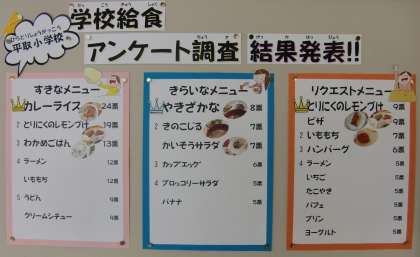 学校給食
がっこうきゅうしょく
びらとりしょうがっこう
平取小学校
アンケート調査 結果発表!!
すきなメニュー
カレーライス 24票
2 とりにくのレモンづけ 19票
3 わかめごはん 13票
4 ラーメン 12票
いももち 12票
5 うどん 9票
クリームシチュー 9票
きらいなメニュー
やきざかな 8票
2 きのこじる 7票
かいそうサラダ 7票
3 カップエッグ 6票
4 ブロッコリーサラダ 5票
バナナ 5票
リクエストメニュー
とりにくのレモンづけ 9票
ピザ 9票
2 いももち 7票
3 ハンバーグ 6票
4 ラーメン 5票
いちご 5票
たこやき 5票
パフェ 5票
プリン 5票
ヨーグルト 5票